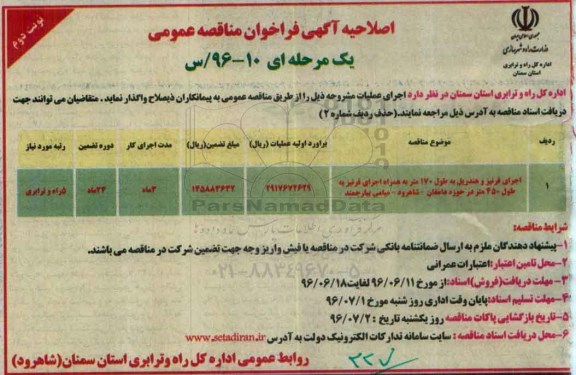 نوبت دوم
اصلاحیه آگهی فراخوان مناقصه عمومی
یک مرحله ای ۱۰-۹۶/س
جمهوری اسلامی ایران
وزارت راه و شهرسازی
اداره کل راه و ترابری
استان سمنان
اداره کل راه و ترابری استان سمنان در نظر دارد اجرای عملیات مشروحه ذیل را از طریق مناقصه عمومی به پیمانکاران ذیصلاح واگذار نماید . متقاضیان می توانند جهت
دریافت اسناد مناقصه به آدرس ذیل مراجعه نمایند.(حذف ردیف شماره ۲)
ردیف موضوع مناقصه براورد اولیه عملیات (ریال) مبلغ تضمین(ریال) مدت اجرای کار دوره تضمین رتبه مورد نیاز
۱ اجرای قرنیز و هندریل به طول ۱۷۰ متر به همراه اجرای قرنیز به طول ۴۵۰ متر در حوزه دامغان - شاهرود - میامی بیارجمند ۲۹۱۷۶۷۲۶۴۹ ۱۴۵۸۸۳۶۳۲ ۳ماه ۲۴ماه ۵راه و ترابری
ParsNamadData
۰۲۱-۸۸۳۴۹۶۷۰-۵
شرایط مناقصه:
۱-پیشنهاد دهندگان ملزم به ارسال ضمانتنامه بانکی شرکت در مناقصه یا فیش واریز وجه جهت تضمین شرکت در مناقصه می باشند.
۲-محل تامین اعتبار:اعتبارات عمرانی
۳-مهلت دریافت(فروش)اسناد:از مورخ ۹۶/۰۶/۱۱ لغایت ۹۶/۰۶/۱۸
۴-مهلت تسلیم اسناد:پایان وقت اداری روز شنبه مورخ ۹۶/۰۷/۱
۵-تاریخ بازگشایی پاکات مناقصه روز یکشنبه تاریخ : ۹۶/۰۷/۲
۶-محل دریافت اسناد مناقصه : سایت سامانه تدارکات الکترونیک دولت به آدرس www.setadiran.ir
روابط عمومی اداره کل راه وترابری استان سمنان(شاهرود)